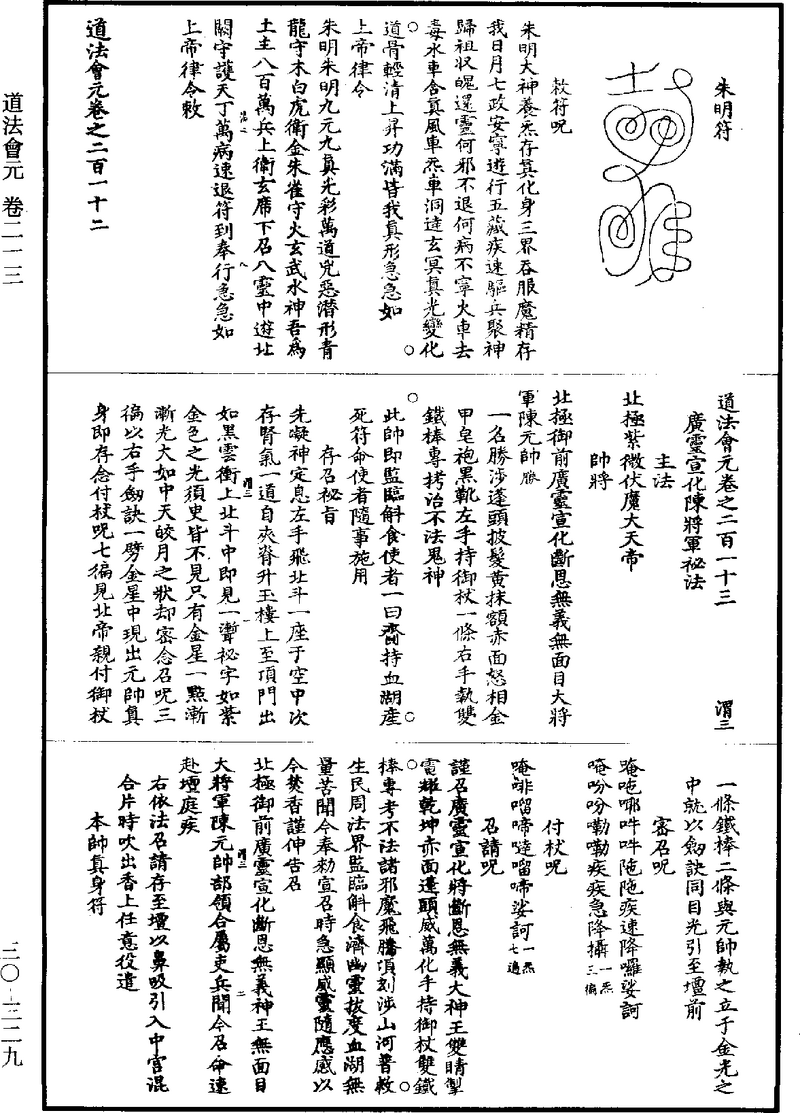 道法會元 卷二一三
三〇-三二九
朱明符
敕符呪
朱明大神養炁存真化身三界吞服魔精存
我日月七政安寧遊行五藏疾速驅兵聚神
歸祖收魄還靈何邪不退何病不寧火車去
毒水車含真風車炁車洞達玄冥真光變化
道骨輕清上昇功滿皆我真形急急如
上帝律令
朱明朱明九元九真光彩萬道兇惡潛形青
龍守木白虎衛金朱雀守火玄武水神吾為
土主八百萬兵上衛玄席下召八靈中遊北
闕守護天丁萬病速退符到奉行急急如
上帝律令敕
道法會元卷之二百一十二
道法會元卷之二百一十三 渭三
廣靈宣化陳將軍祕法
主法
北極紫微伏魔大天帝
帥將
北極御前廣靈宣化斷恩無義無面目大將
軍陳元帥勝
一名勝涉蓬頭披髮黃抹額赤面怒相金
甲皂袍黑靴左手持御杖一條右手執雙
鐵棒專拷治不法鬼神
此帥即監臨斛食使者一曰齎持血湖產
死符命使者隨事施用
存召祕旨
先凝神定息左手飛北斗一座于空中次
存腎氣一道自夾脊升玉樓上至頂門出
如黑雲衝上北斗中即見一𩆜祕字如紫
金色之光須臾皆不見只有金星一點漸
漸光大如中天皎月之狀却密念召呪三
徧以右手劒訣一劈金星中現出元帥真
身即存念付杖呪七徧見北帝親付御杖
一條鐵棒二條與元帥執之立于金光之
中就以劒訣同目光引至壇前
密召呪
唵吔哪吽吽陁陁疾速降囉娑訶
唵吩吩嘞嘞疾疾急降攝一炁三徧
付杖呪
唵啡嚠啼噠嚠啼娑訶一炁七遍
召請呪
謹召廣靈宣化將斷恩無義大神王雙睛掣
電耀乾坤赤面蓬頭威萬化手持御杖雙鐵
棒專考不法諸邪魔飛騰頃刻涉山河普救
生民周法界監臨斛食濟幽靈拔度血湖無
量苦聞今奉勑宣召時急顯威靈隨應感以
今焚香謹伸告召
北極御前廣靈宣化斷恩無義神王無面目
大將軍陳元帥部領合屬吏兵聞今召命速
赴壇庭疾
右依法召請存至壇以鼻吸引入中宮混
合片時吹出香上任意役遣
本帥真身符